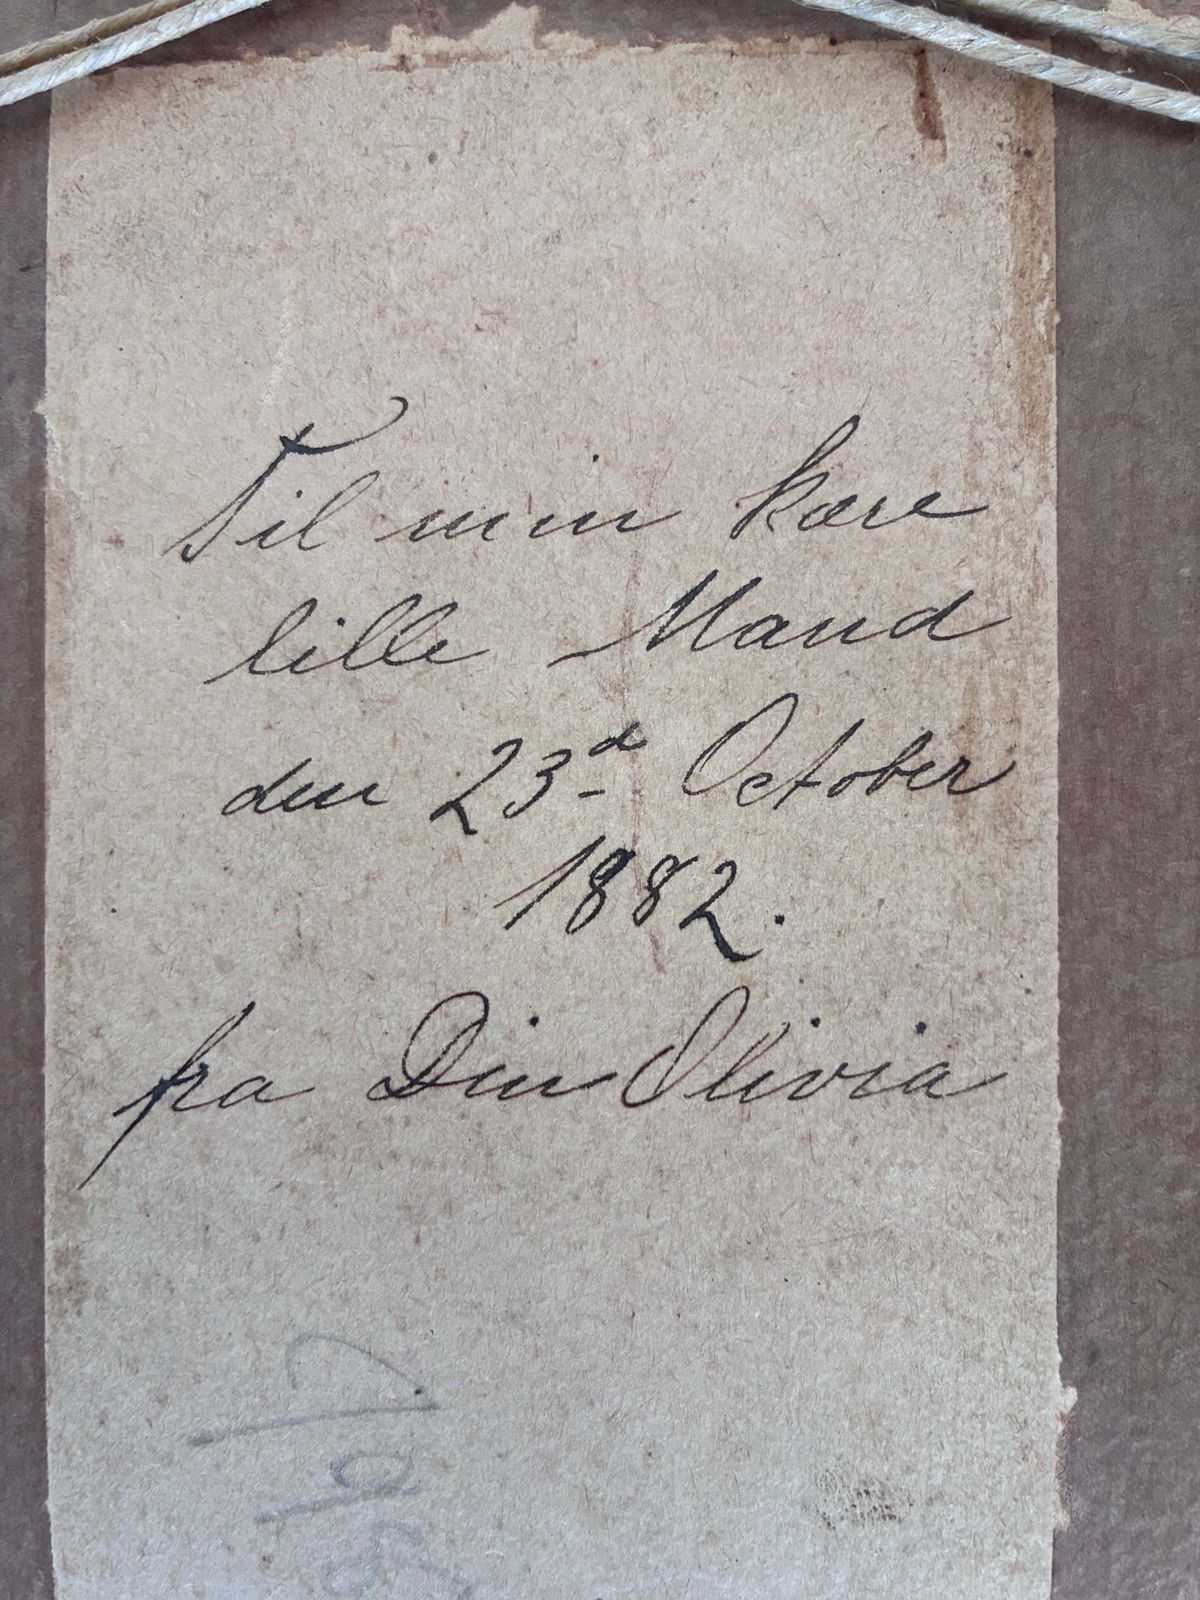 Til min kære
lille Mand
den 23d October
1882.
fra Din Olivia